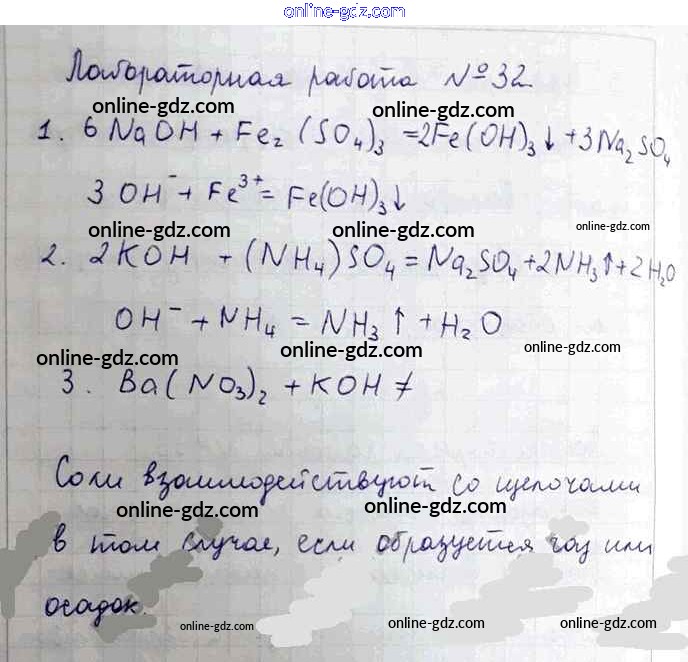 online-gdz.com
Лабораторная работа №32
online-gdz.com online-gdz.com
1. 6NaOH + Fe₂(SO₄)₃ = 2Fe(OH)₃↓ + 3Na₂SO₄
3OH⁻ + Fe³⁺ = Fe(OH)₃↓
online-gdz.com online-gdz.com online-gdz.com
2. 2KOH + (NH₄)SO₄ = Na₂SO₄ + 2NH₃↑ + 2H₂O
OH⁻ + NH₄ = NH₃↑ + H₂O
online-gdz.com online-gdz.com online-gdz.com
3. Ba(NO₃)₂ + KOH ≠
Соли взаимодействуют со щелочами
online-gdz.com online-gdz.com
в том случае, если образуется газ или
осадок.
online-gdz.com online-gdz.com online-gdz.com